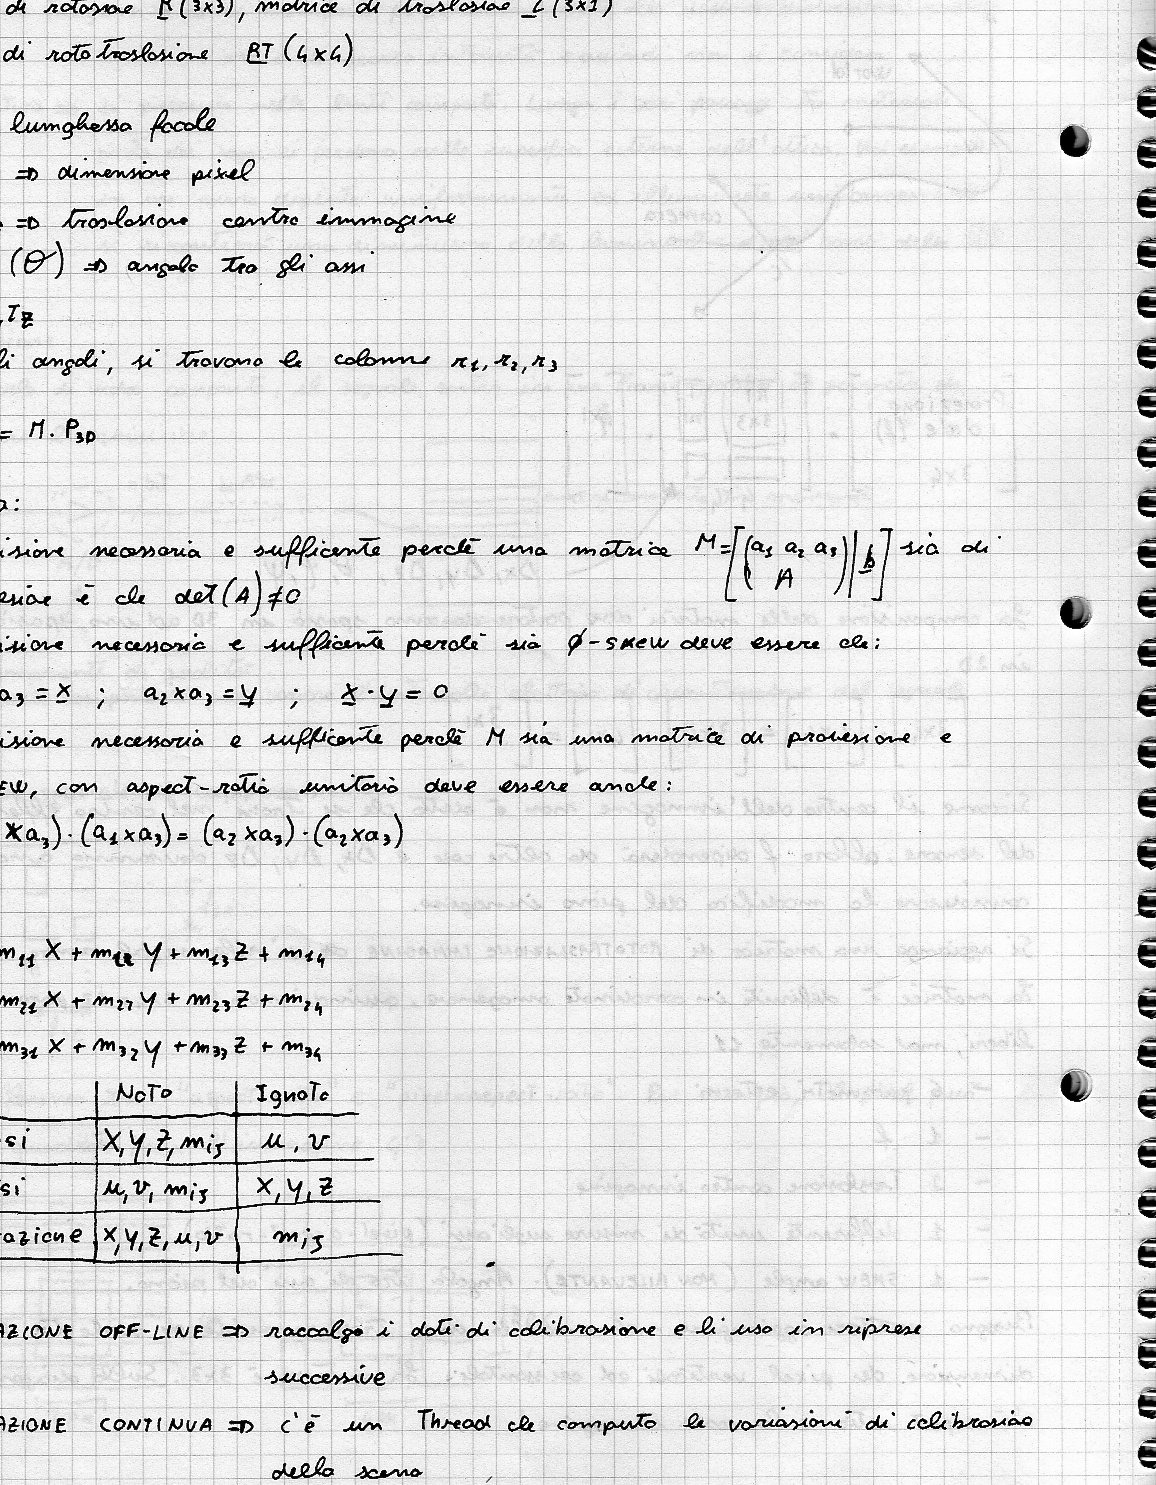 di rotazione R (3x3), matrice di traslazione t (3x1)
di rototraslazione RT (4x4)
lunghezza focale
=> dimensione pixel
=> traslazione centro immagine
(θ) => angolo tra gli assi
,Tz
li angoli, si trovano le colonne r1, r2, r3
= M · P3D
a:
izione necessaria e sufficente perchè una matrice M=[(a1 a2 a3 A)|b] sia di
ezione è che det(A)≠0
izione necessaria e sufficente perchè sia φ-SKEW deve essere che:
a3 = x ; a2 x a3 = y ; x · y = 0
izione necessaria e sufficente perchè M sia una matrice di proiezione e
EW, con aspect-ratio unitario deve essere anche:
x a3) · (a1 x a3) = (a2 x a3) · (a2 x a3)
m11 X + m12 Y + m13 Z + m14
m21 X + m22 Y + m23 Z + m24
m31 X + m32 Y + m33 Z + m34
Noto Ignoto
si X, Y, Z, mij u, v
si u, v, mij X, Y, Z
azione X, Y, Z, u, v mij
AZIONE OFF-LINE => raccolgo i dati di calibrazione e li uso in riprese
successive
AZIONE CONTINUA => c'è un Thread che computa le variazioni di calibrazio
della scena